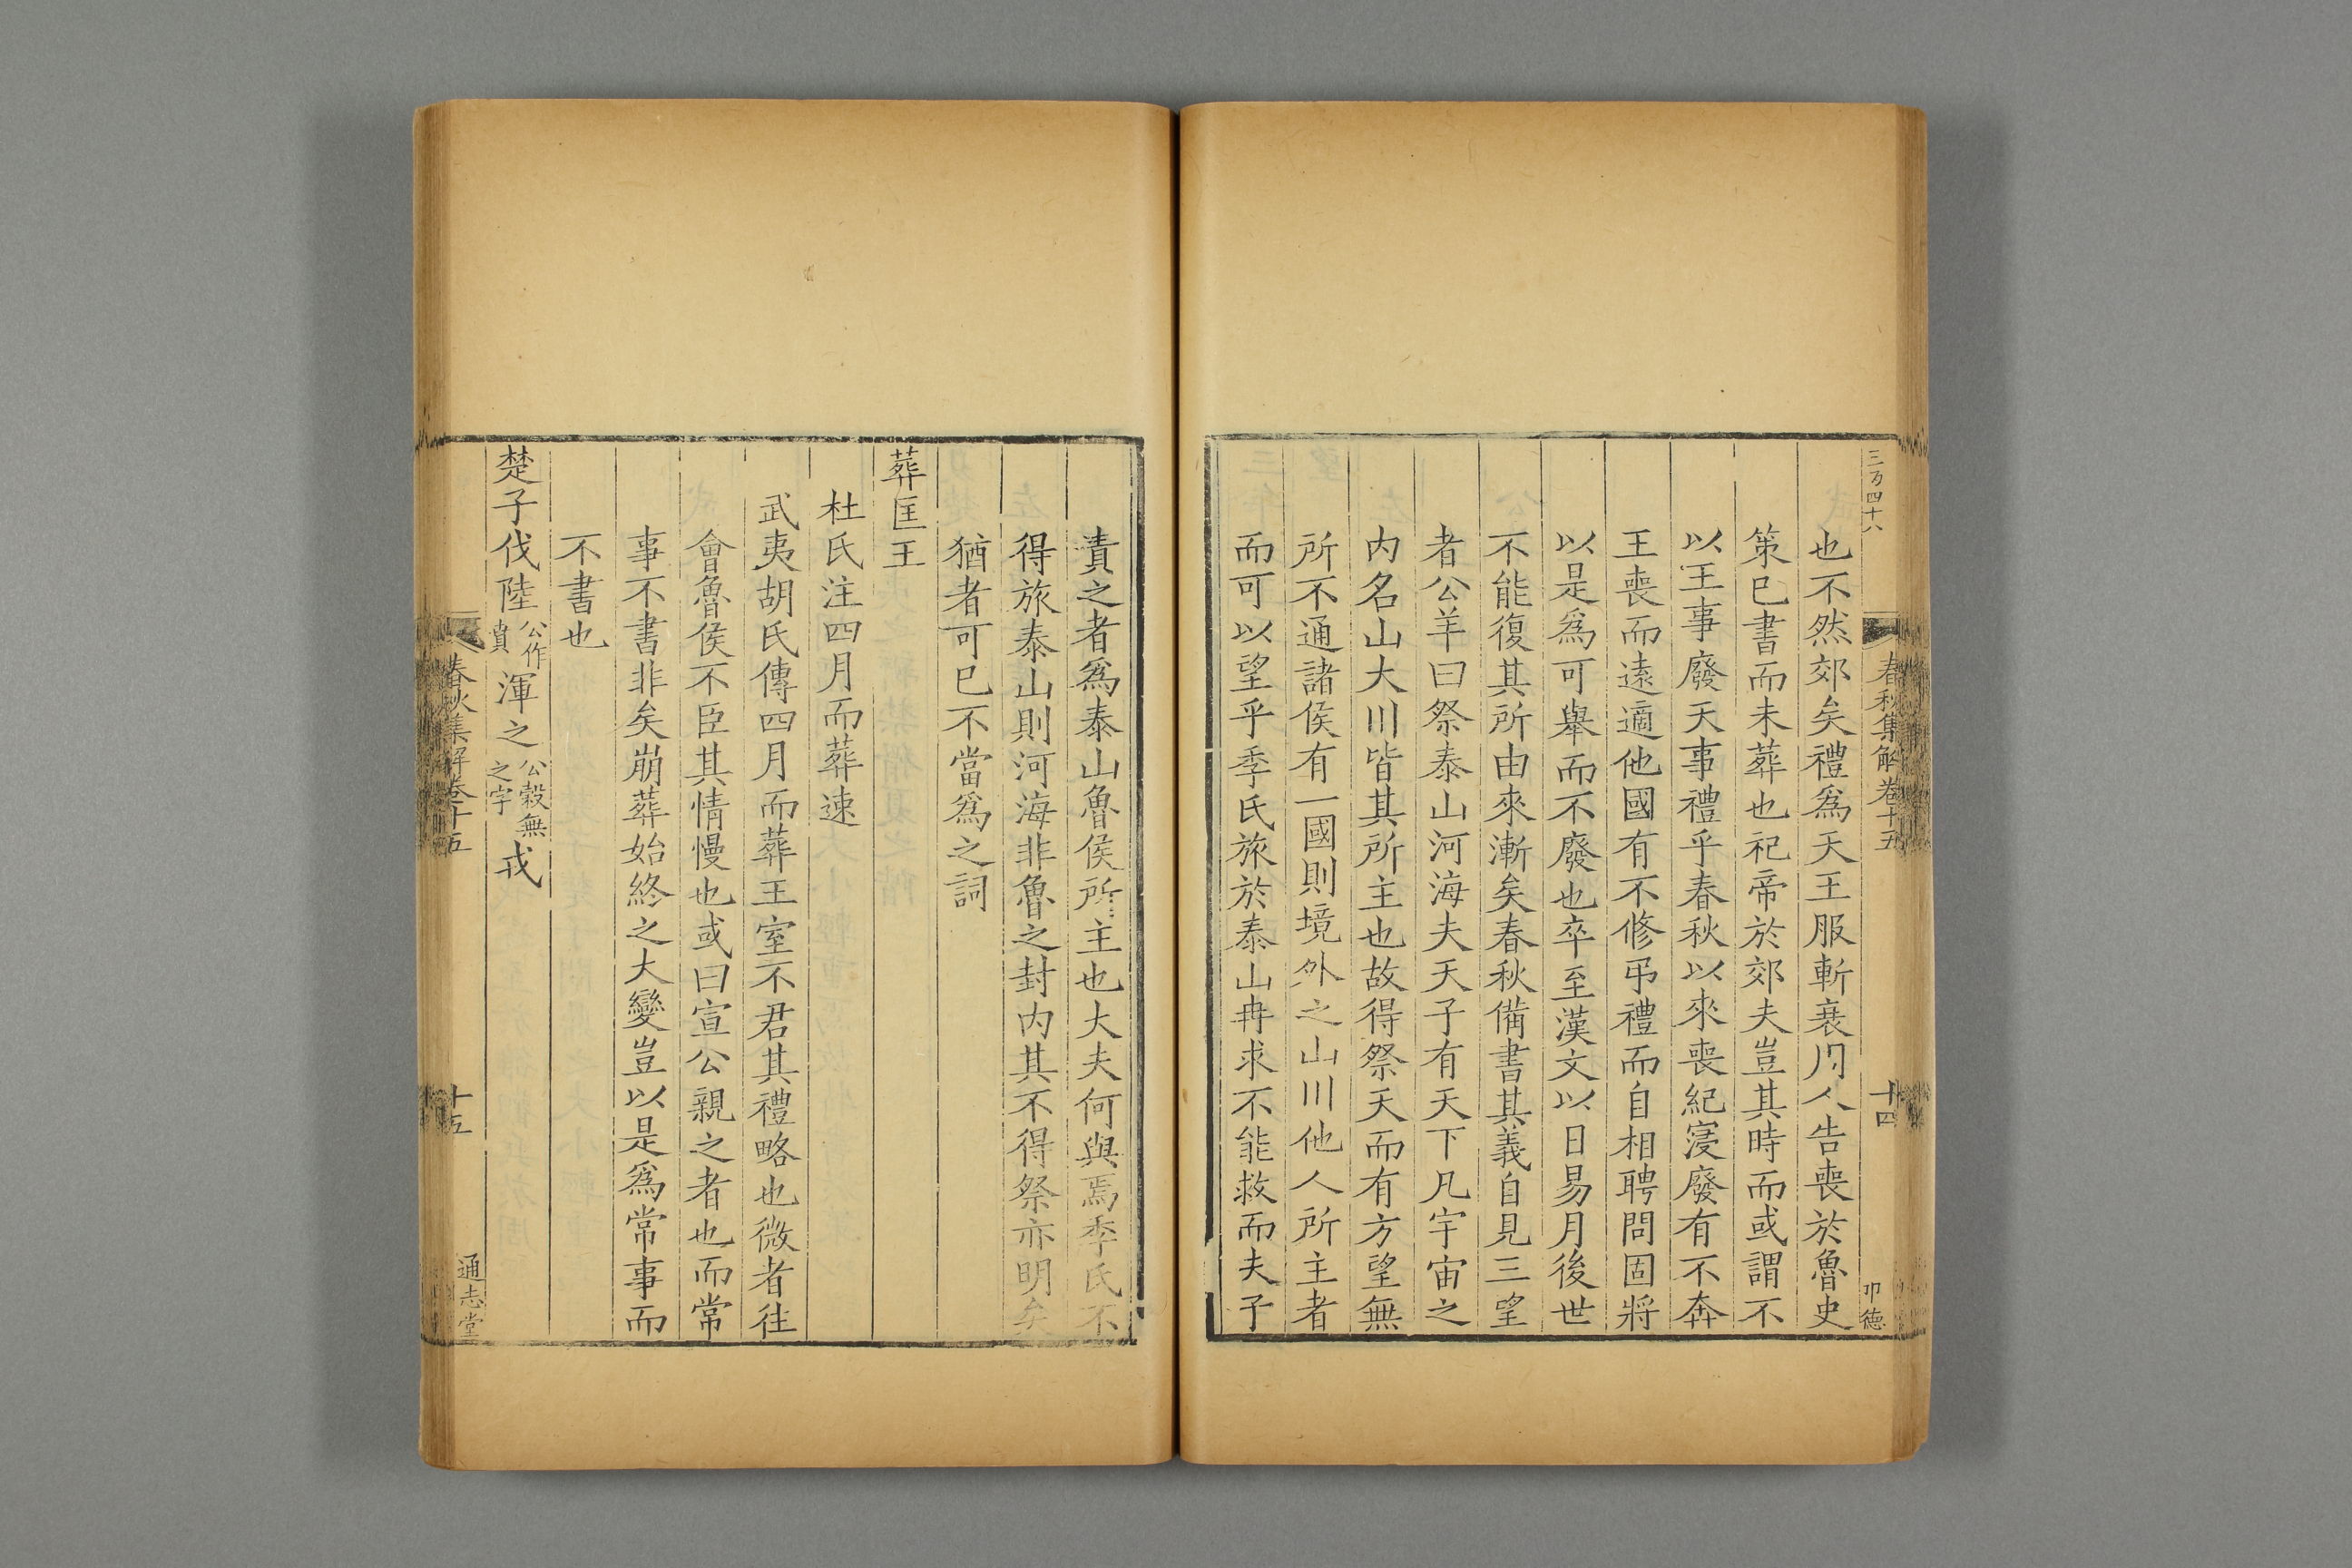 三万四十八
春秋集解卷十五
十四
卬德
也不然郊矣禮爲天王服斬衰周人告喪於魯史
策巳書而未葬也祀帝於郊夫豈其時而或謂不
以王事廢天事禮乎春秋以來喪紀寖廢有不奔
王喪而遠適他國有不修弔禮而自相聘問固將
以是爲可舉而不廢也卒至漢文以日易月後世
不能復其所由來漸矣春秋備書其義自見三望
者公羊曰祭泰山河海夫天子有天下凡宇宙之
内名山大川皆其所主也故得祭天而有方望無
所不通諸侯有一國則境外之山川他人所主者
而可以望乎季氏旅於泰山冉求不能救而夫子
責之者爲泰山魯侯所主也大夫何與焉季氏不
得旅泰山則河海非魯之封内其不得祭亦明矣
猶者可巳不當爲之詞
葬匡王
杜氏注四月而葬速
武夷胡氏傳四月而葬王室不君其禮略也微者往
會魯侯不臣其情慢也或曰宣公親之者也而常
事不書非矣崩葬始終之大變豈以是爲常事而
不書也
楚子伐陸公作賁渾之公穀無之字戎
春秋集解卷十五
十五
通志堂